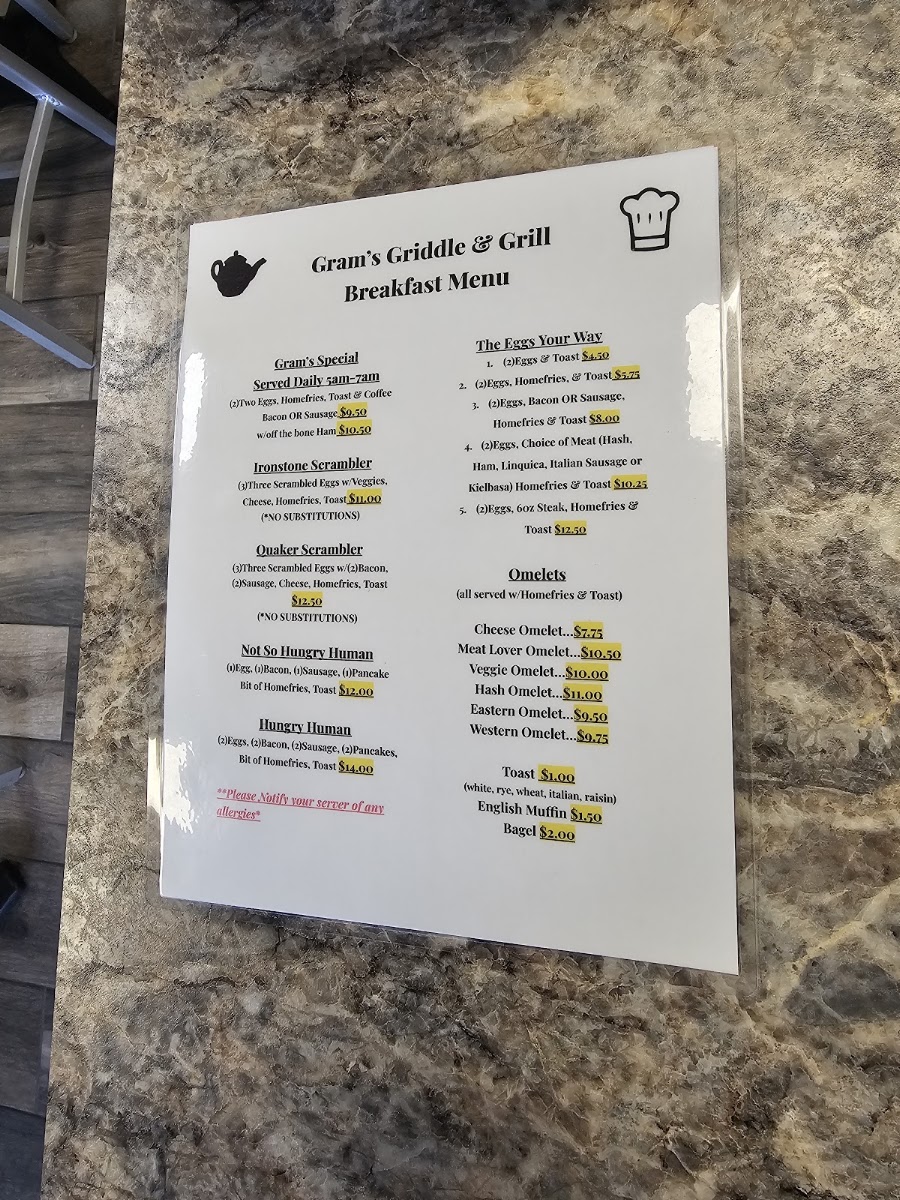 Gram's Griddle & Grill
Breakfast Menu
Gram's Special
Served Daily 5am-7am
(2)Two Eggs, Homefries, Toast & Coffee
Bacon OR Sausage $9.50
w/off the bone Ham $10.50
Ironstone Scrambler
(3)Three Scrambled Eggs w/Veggies,
Cheese, Homefries, Toast $11.00
(*NO SUBSTITUTIONS)
Quaker Scrambler
(3)Three Scrambled Eggs w/(2)Bacon,
(2)Sausage, Cheese, Homefries, Toast
$12.50
(*NO SUBSTITUTIONS)
Not So Hungry Human
(1)Egg, (1)Bacon, (1)Sausage, (1)Pancake
Bit of Homefries, Toast $12.00
Hungry Human
(2)Eggs, (2)Bacon, (2)Sausage, (2)Pancakes,
Bit of Homefries, Toast $14.00
**Please Notify your server of any
allergies*
The Eggs Your Way
1. (2)Eggs & Toast $4.50
2. (2)Eggs, Homefries, & Toast $5.75
3. (2)Eggs, Bacon OR Sausage,
Homefries & Toast $8.00
4. (2)Eggs, Choice of Meat (Hash,
Ham, Linquica, Italian Sausage or
Kielbasa) Homefries & Toast $10.25
5. (2)Eggs, 6oz Steak, Homefries &
Toast $12.50
Omelets
(all served w/Homefries & Toast)
Cheese Omelet...$7.75
Meat Lover Omelet...$10.50
Veggie Omelet...$10.00
Hash Omelet...$11.00
Eastern Omelet...$9.50
Western Omelet...$9.75
Toast $1.00
(white, rye, wheat, italian, raisin)
English Muffin $1.50
Bagel $2.00